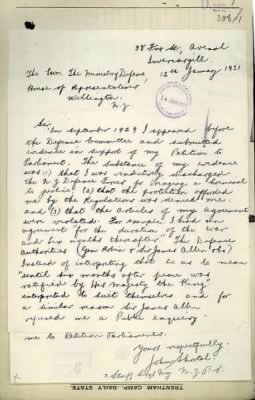 308/1
28 Fox St, Avenal
Invercargill
12th January 1931
The Hon. The Minister of Defence
House of Representatives
Wellington
N.Z
Sir
In september 1929 I appeared before
the Defence Committee and submitted
evidence in support of my Petition to
Parliament. The substance of my evidence
was (1) that I was vindictively discharged
the N.Z Defence Forces for bringing a
to justice; (2) that the protection afforded
me by the Regulations was denied me
and (3) that the articles of my agreement
were violated. For example I had an
agreement "for the duration of the war
and six months thereafter" The Defence
authorities (Gen Robin & Sir James Allen)
Instead of interpreting that to as to mean
"until six months after peace was
notified by His Majesty the King"
interpreted to suit themselves, and for
a similar reason Sir James Allen
refused me a Public enquiry.
me to Petition Parliament.
Yours respectfully.
John Shortel
Staff Sgt Maj N.Z.P.S.
TRENTHAM CAMP. DAILY STATE.